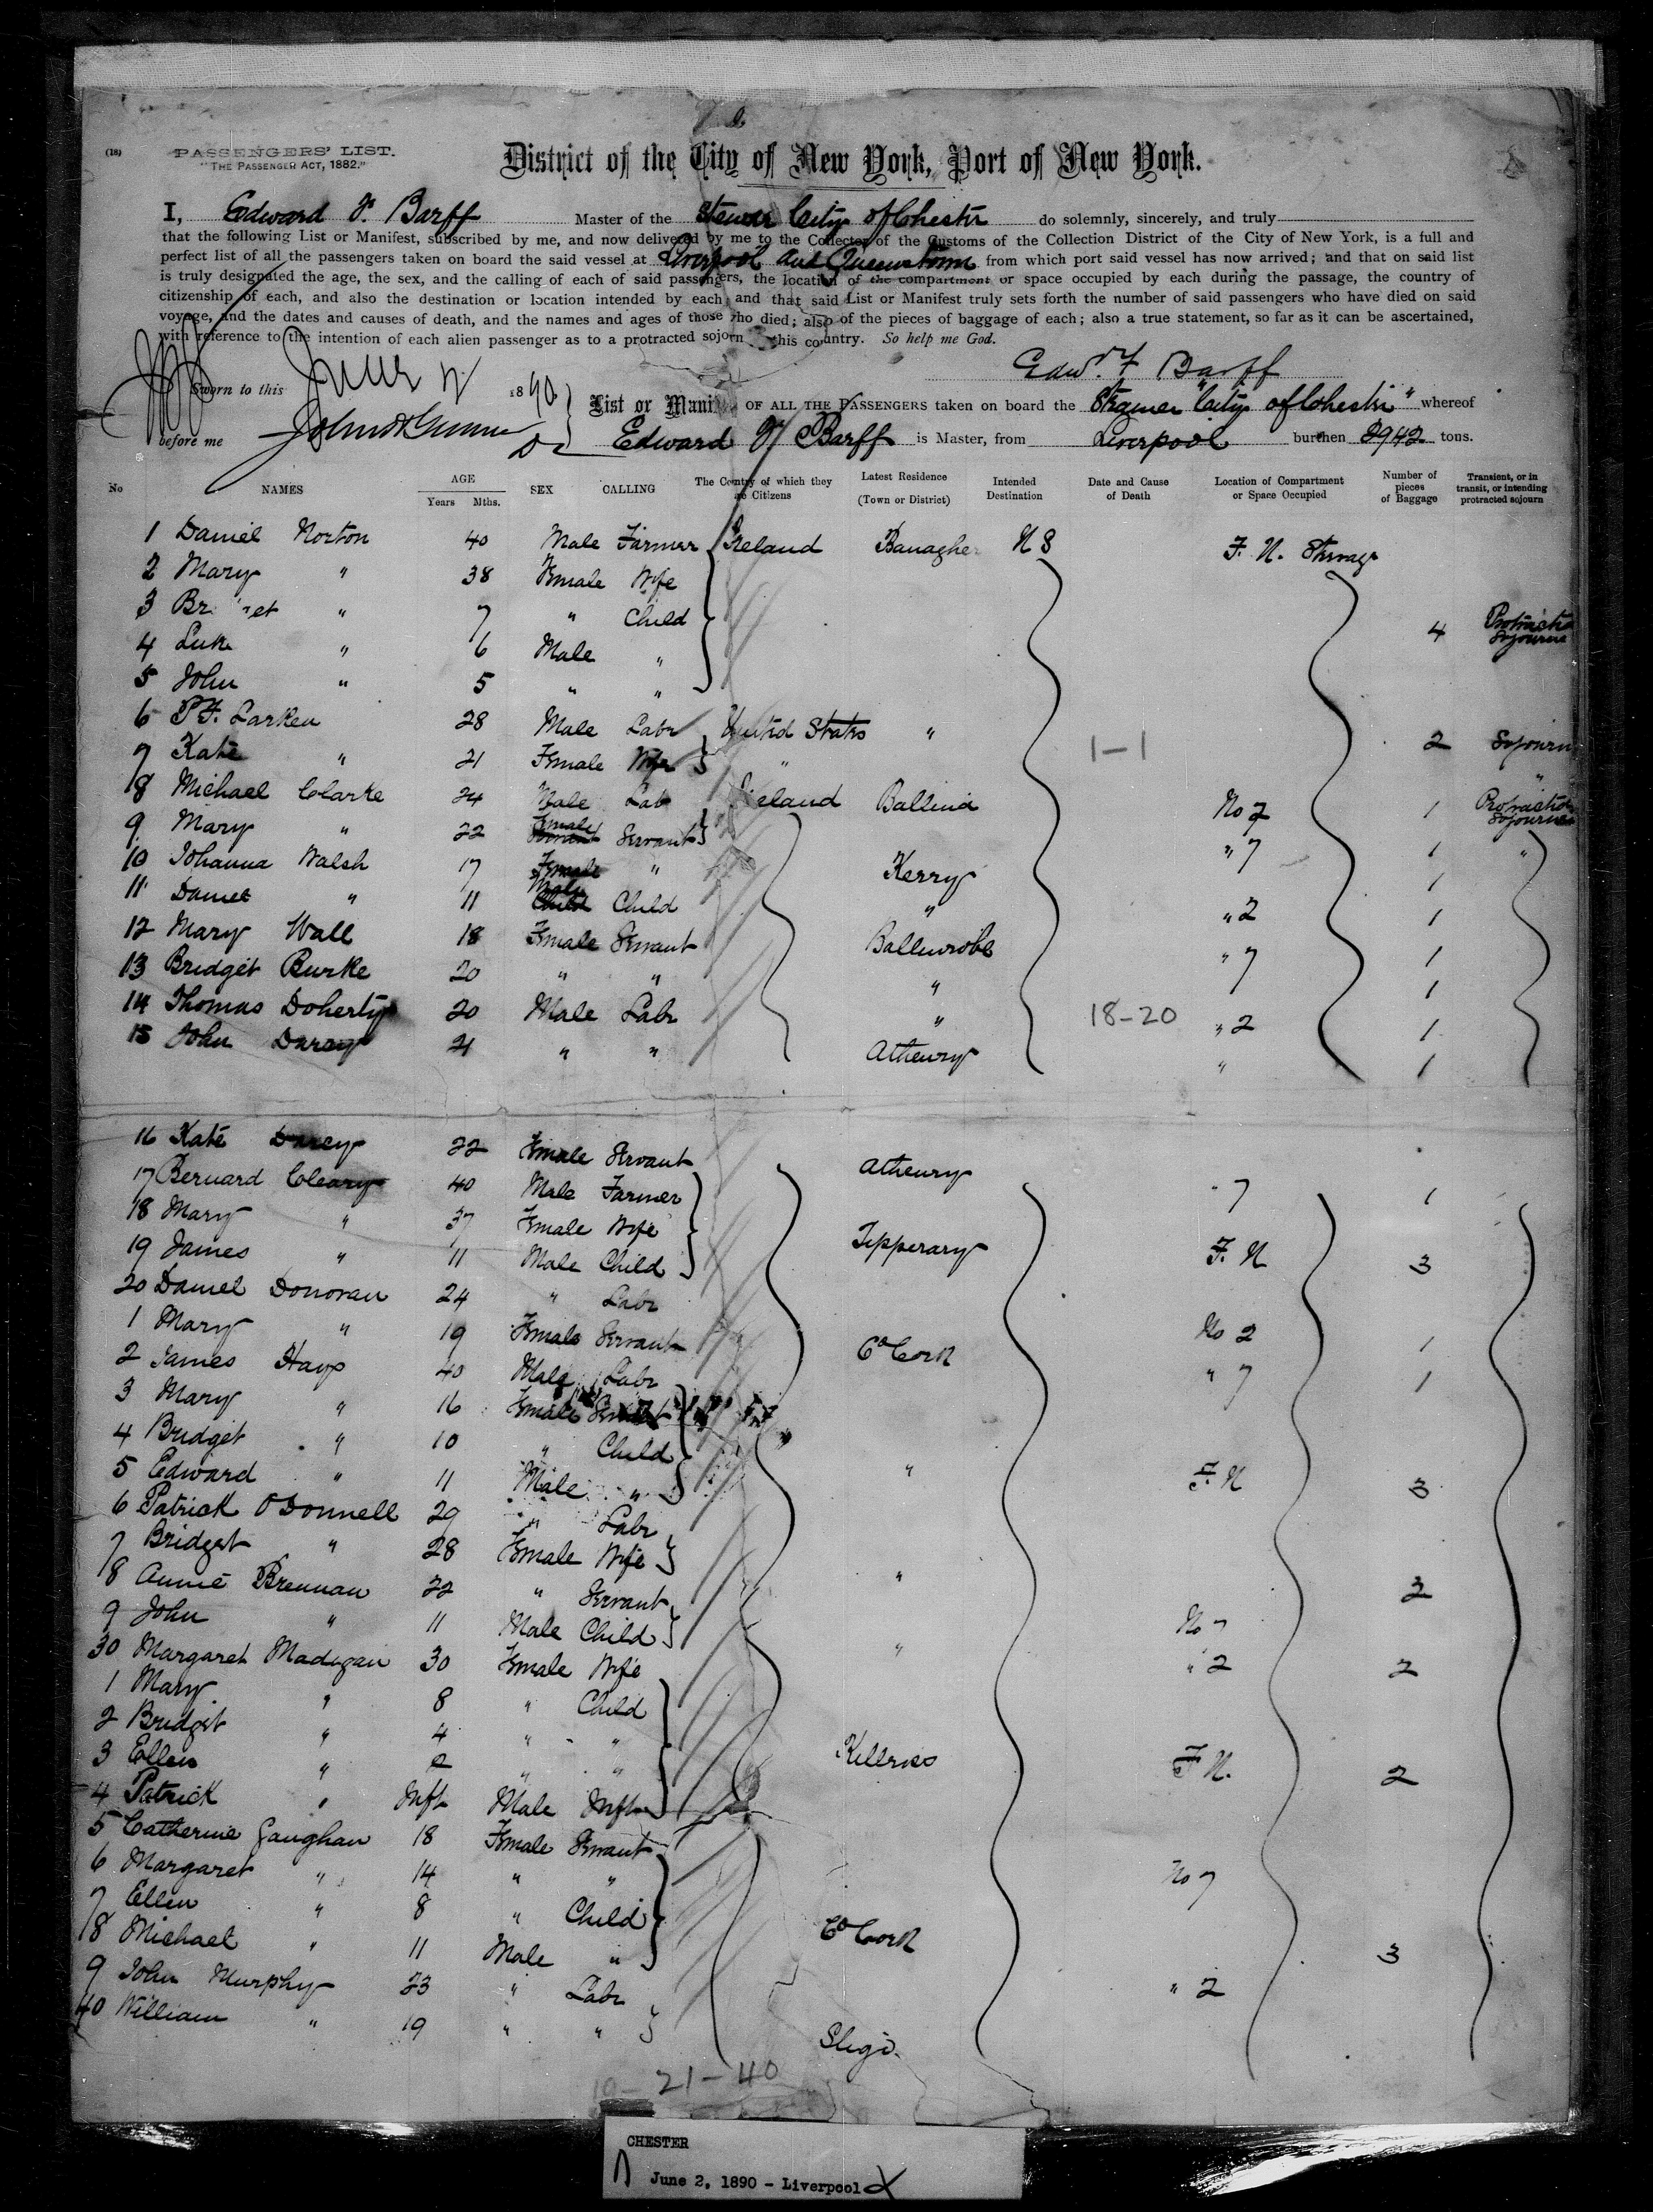 (18)
PASSENGERS' LIST.
"THE PASSENGER ACT, 1882."
District of the City of New York, Port of New York.
I, Edward F. Barff Master of the Steamer City of Chester do solemnly, sincerely, and truly
that the following List or Manifest, subscribed by me, and now delivered by me to the Collector of the Customs of the Collection District of the City of New York, is a full and
perfect list of all the passengers taken on board the said vessel at Liverpool and Queenstown from which port said vessel has now arrived; and that on said list
is truly designated the age, the sex, and the calling of each of said passengers, the location of the compartment or space occupied by each during the passage, the country of
citizenship of each, and also the destination or location intended by each and that said List or Manifest truly sets forth the number of said passengers who have died on said
voyage, and the dates and causes of death, and the names and ages of those who died; also of the pieces of baggage of each; also a true statement, so far as it can be ascertained,
with reference to the intention of each alien passenger as to a protracted sojorn this country. So help me God.
Edwd. F Barff
Sworn to this June 2 1890
before me
List or Mani OF ALL THE PASSENGERS taken on board the Steamer "City of Chester" whereof
Edward F. Barff is Master, from Liverpool burthen 2942 tons.
No NAMES AGE Years Mths. SEX CALLING The Country of which they are Citizens Latest Residence (Town or District) Intended Destination Date and Cause of Death Location of Compartment or Space Occupied Number of pieces of Baggage Transient, or in transit, or intending protracted sojourn
1 Daniel Norton 40 Male Farmer Ireland Banagher N S F. N. Steerage
2 Mary " 38 Female Wife
3 Br et " 7 " Child 4 Protracted Sojourn
4 Luke " 6 Male "
5 John " 5 " "
6 P F. Larken 28 Male Labr United States "
7 Kate " 21 Female Wife " 1-1 2 Sojourn
8 Michael Clarke 24 Male Lab Ireland Ballina No 2 1 Protracted Sojourn
9 Mary " 22 Female Servant " 7 1 "
10 Johanna Walsh 17 Female " Kerry 1
11 Daniel " 11 Male Child " " 2 1
12 Mary Wall 18 Female Servant Ballinrobe " 7 1
13 Bridget Burke 20 " " " 1
14 Thomas Doherty 20 Male Labr " 18-20 " 2 1
15 John Darcy 21 " " Athenry " 1
16 Kate Darcy 22 Female Servant Athenry " 7 1
17 Bernard Cleary 40 Male Farmer
18 Mary " 37 Female Wife Tipperary F. N 3
19 James " 11 Male Child
20 Daniel Donovan 24 " Labr No 2 1
1 Mary " 19 Female Servant Co Cork " 7 1
2 James Hays 40 Male Labr
3 Mary " 16 Female Servant
4 Bridget " 10 " Child " F. N 3
5 Edward " 11 Male "
6 Patrick O'Donnell 29 " Labr
7 Bridget " 28 Female Wife " 2
8 Annie Brennan 22 " Servant No 7
9 John " 11 Male Child " " 2 2
30 Margaret Madigan 30 Female Wife
1 Mary " 8 " Child
2 Bridget " 4 " "
3 Ellen " 2 " " Killriss F N. 2
4 Patrick " Inft Male Inft
5 Catherine Gaughan 18 Female Servant
6 Margaret " 14 " " No 7
7 Ellen " 8 " Child Co Cork
8 Michael " 11 Male " 3
9 John Murphy 23 " Labr " 2
40 William " 19 " " Sligo.
21-40
CHESTER
June 2, 1890 - Liverpool